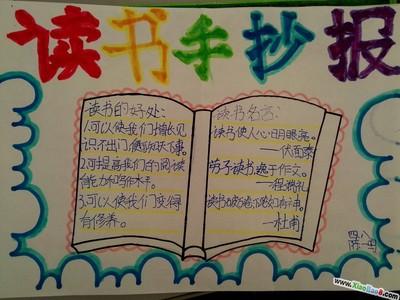 读书手抄报
读书的好处:
1.可以使我们增长见
识不出门便知天下事。
2.可提高我们的阅读
能力和写作水平。
3.可以使我们变得
有修养。
读书名言:
读书使人心明眼亮。
——伏尔泰
劳于读书逸于作文。
——程端礼
读书破万卷下笔如有神。
——杜甫
四、八
www.XiaoBao8.com